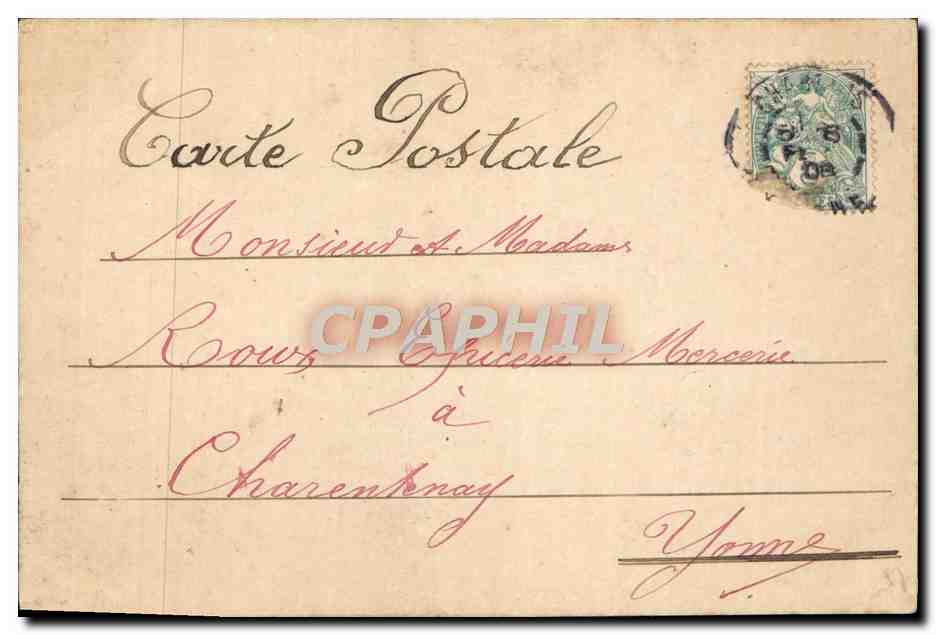 Carte Postale
Monsieur et Madame
Roux Epicerie Mercerie
à
Charentenay
Yonne
CPAPHIL